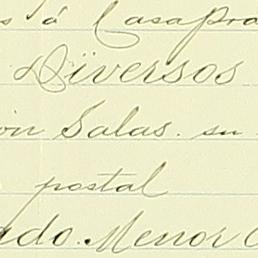 s á CasaPra
Diversos
ón Salas. su
postal
ado. Menor C